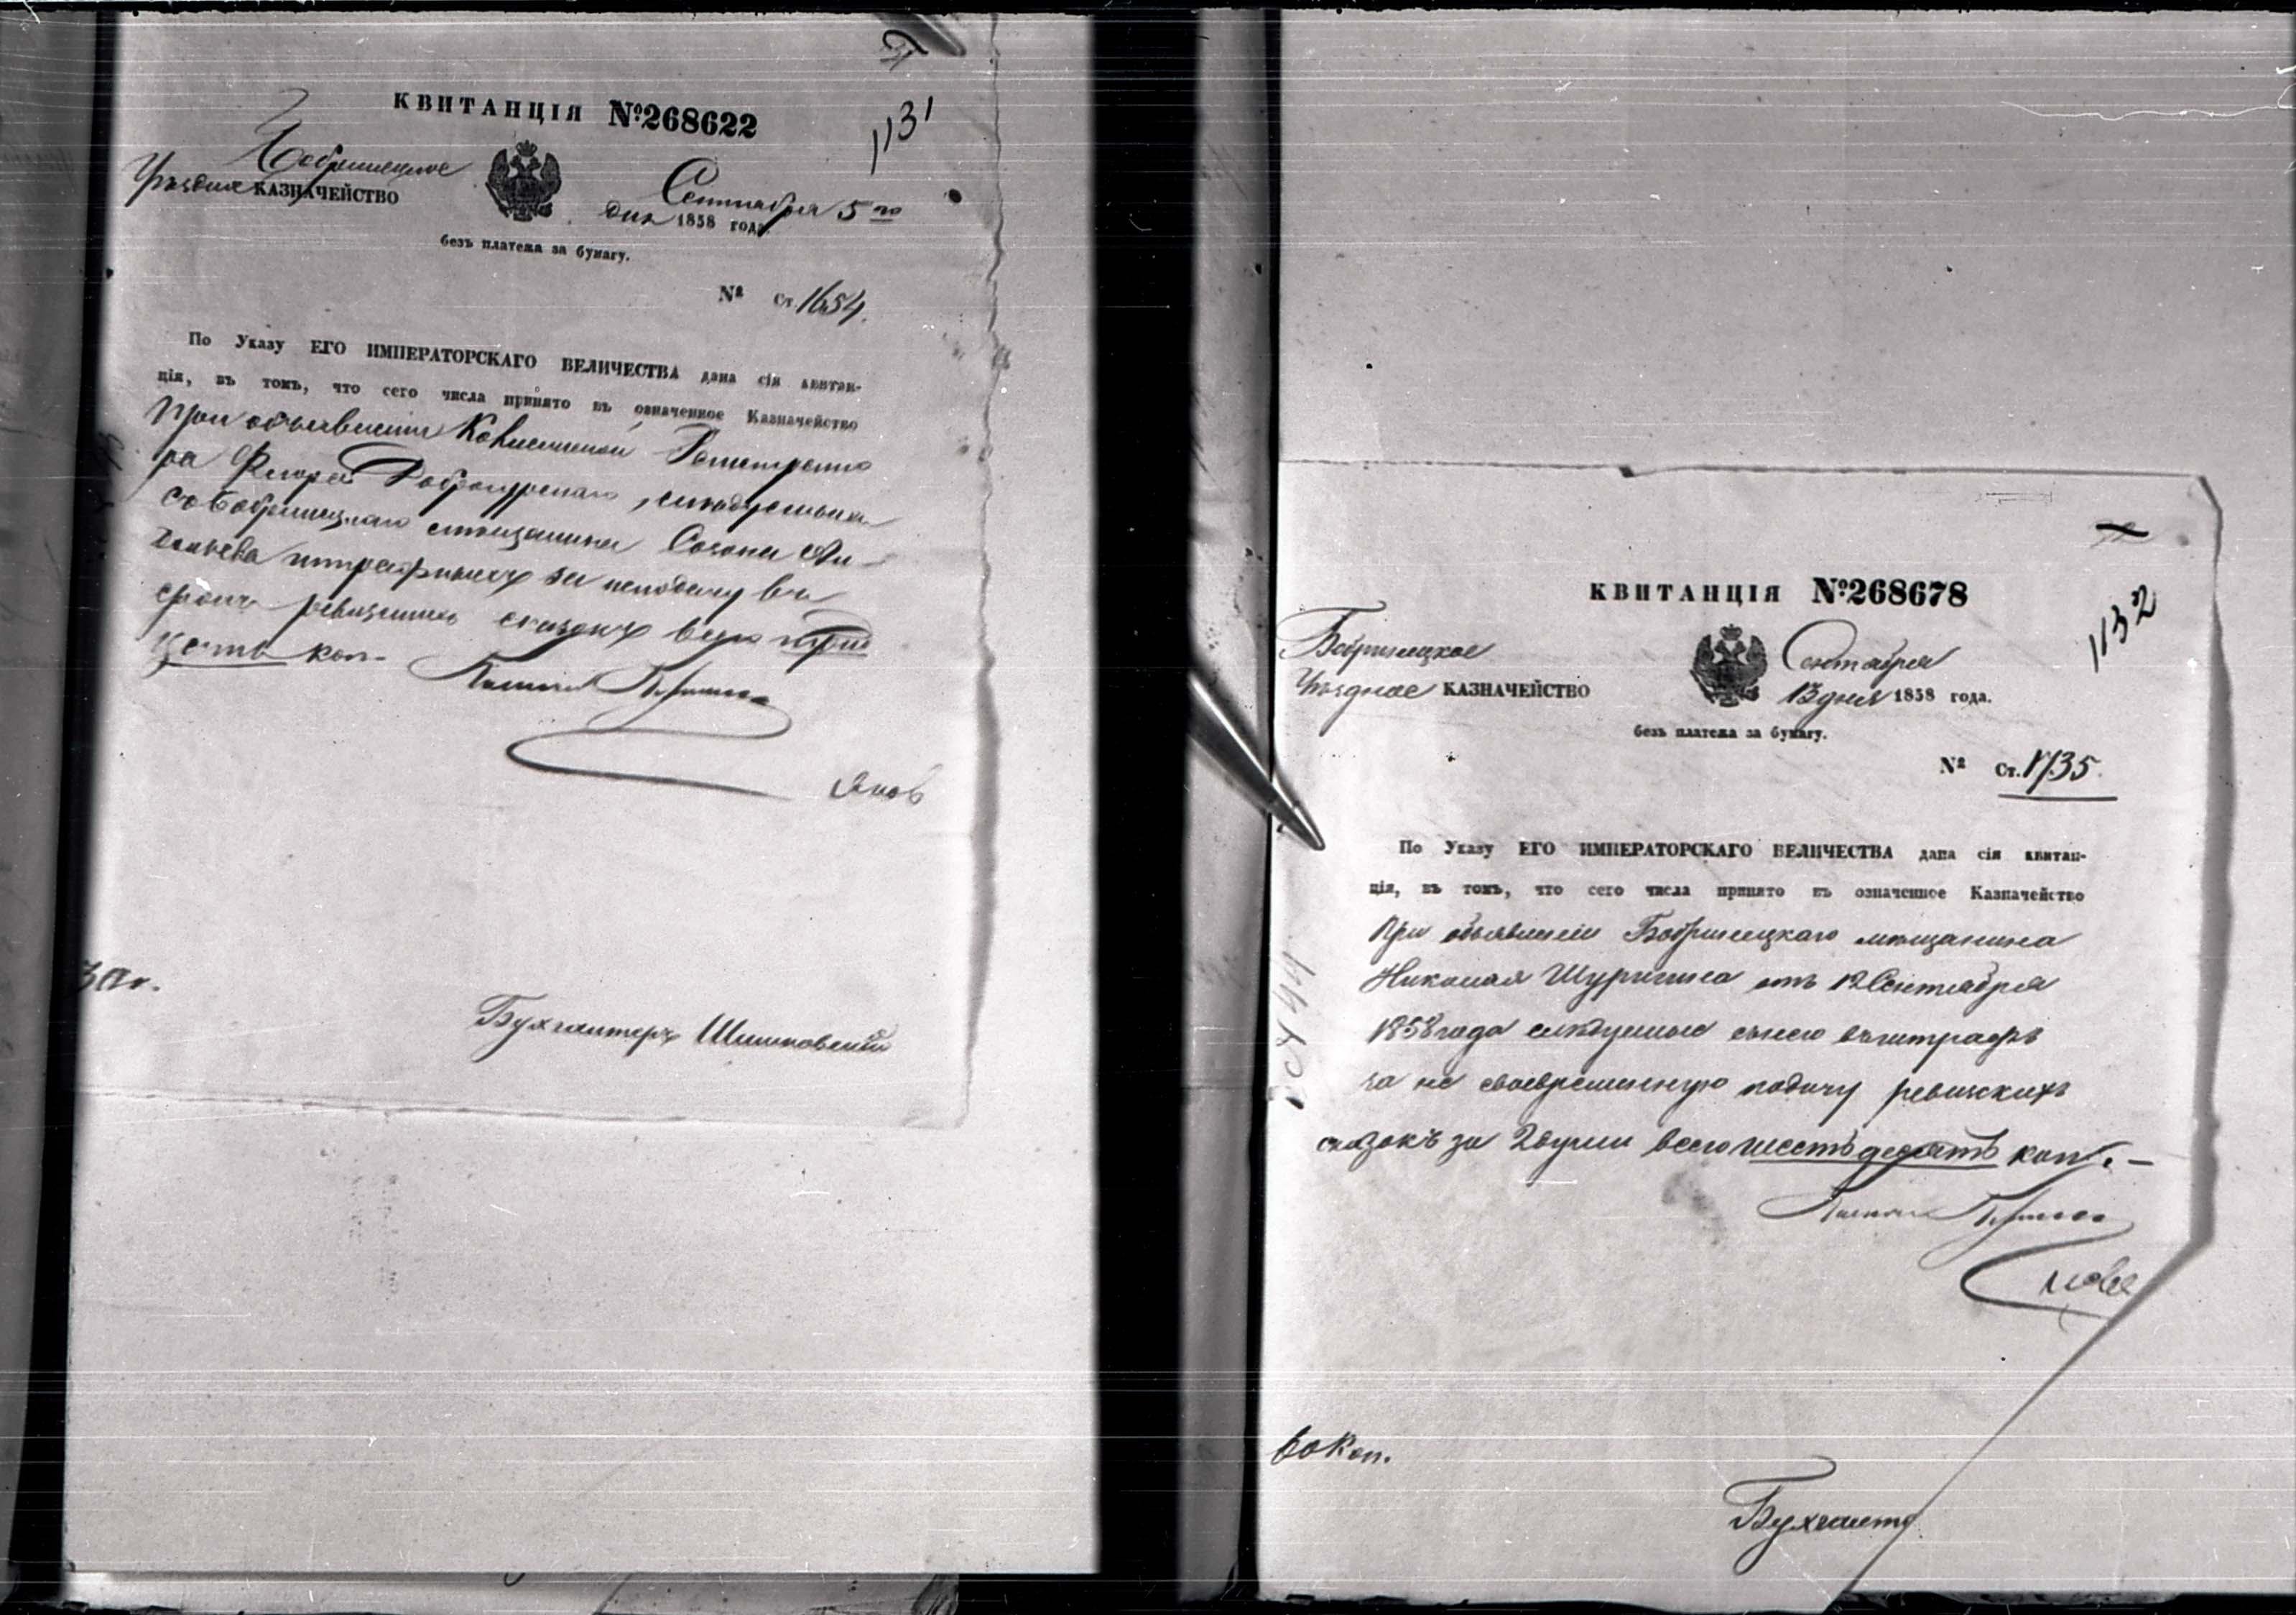 КВИТАНЦІЯ №268622
1131
Бобринецкое
Уѣздное КАЗНАЧЕЙСТВО
Сентября 5го
дня 1858 года.
безъ платежа за бумагу.
№ Ст. 1654.
По Указу ЕГО ИМПЕРАТОРСКАГО ВЕЛИЧЕСТВА дана сія квитан-
ція, въ томъ, что сего числа принято въ означенное Казначейство
При объявленіи
ра слѣдуемыя
съ Бобринецкаго мѣщанина
штрафныхъ за неподачу въ
срокъ ревизскихъ сказокъ всего трид
цать коп.
Бухгалтеръ
КВИТАНЦІЯ №268678
1132
Бобринецкое
Уѣздное КАЗНАЧЕЙСТВО
Сентября
13 дня 1858 года.
безъ платежа за бумагу.
№ Ст. 1735.
По Указу ЕГО ИМПЕРАТОРСКАГО ВЕЛИЧЕСТВА дана сія квитан-
ція, въ томъ, что сего числа принято въ означенное Казначейство
При объявленіи Бобринецкаго мѣщанина
Николая отъ 12 Сентября
1858 года слѣдуемые съ него въ штрафъ
за не своевременную подачу ревизскихъ
сказокъ за 2 души всего шестьдесятъ коп. —
60 коп.
Бухгалте